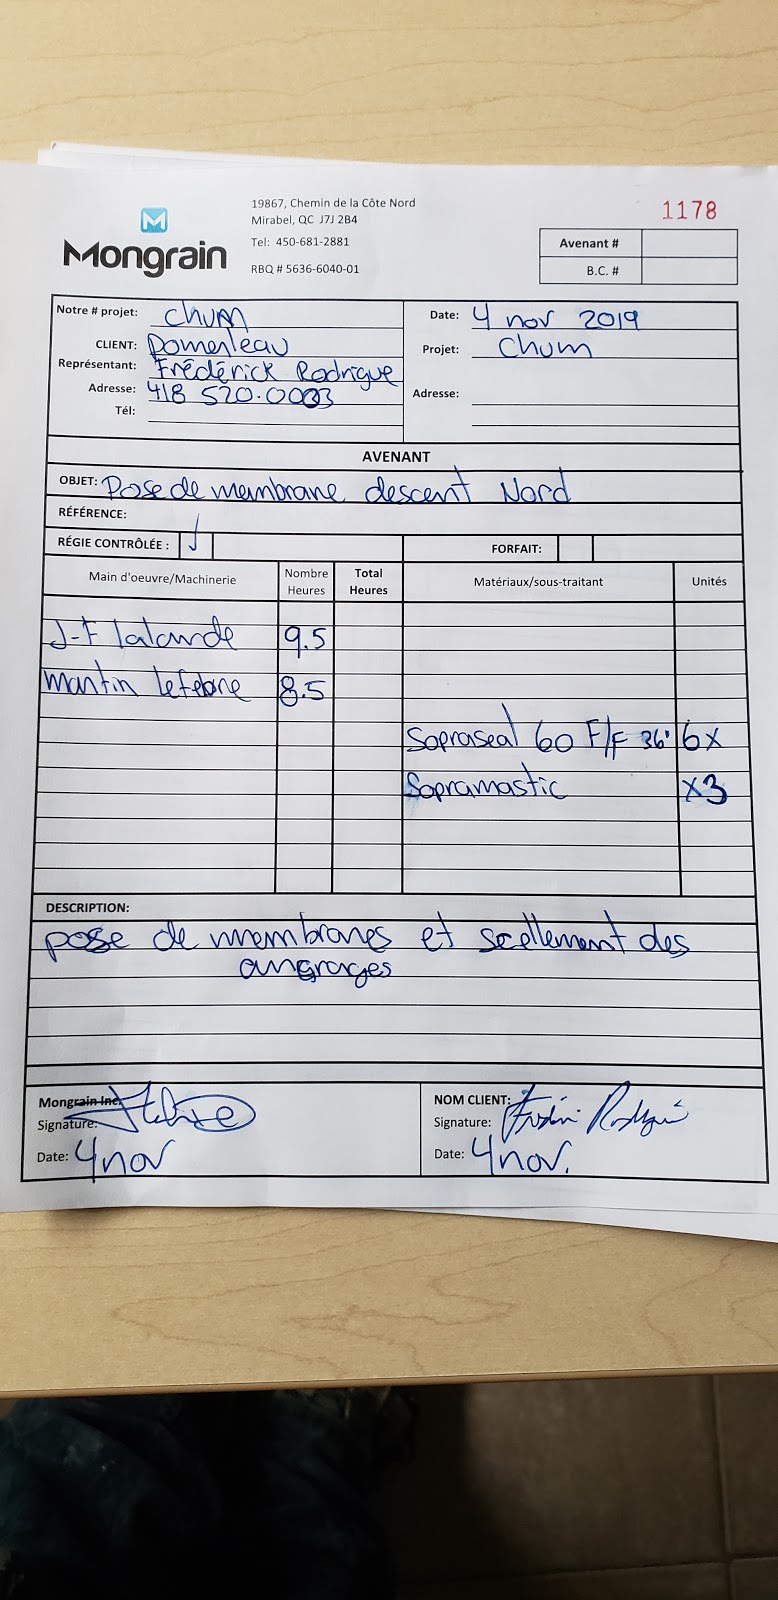 19867, Chemin de la Côte Nord
Mirabel, QC J7J 2B4
Tel: 450-681-2881
RBQ # 5636-6040-01
M
Mongrain
1178
Avenant #
B.C. #
Notre # projet: Chum
CLIENT: Pomerleau
Représentant: Frédérick Rodrigue
Adresse: 418 520.0003
Tél:
Date: 4 nov 2019
Projet: Chum
Adresse:
AVENANT
OBJET: Pose de membrane descent Nord
RÉFÉRENCE:
RÉGIE CONTRÔLÉE : FORFAIT:
Main d'oeuvre/Machinerie Nombre Heures Total Heures Matériaux/sous-traitant Unités
J-F Lalande 9.5
Martin Lefebvre 8.5
Sopraseal 60 F/F 36" 6x
Sopramastic x3
DESCRIPTION:
pose de membranes et scellement des
ancrages
Mongrain Inc.
Signature:
Date: 4 nov
NOM CLIENT:
Signature: Frédéric Rodrigue
Date: 4 nov.